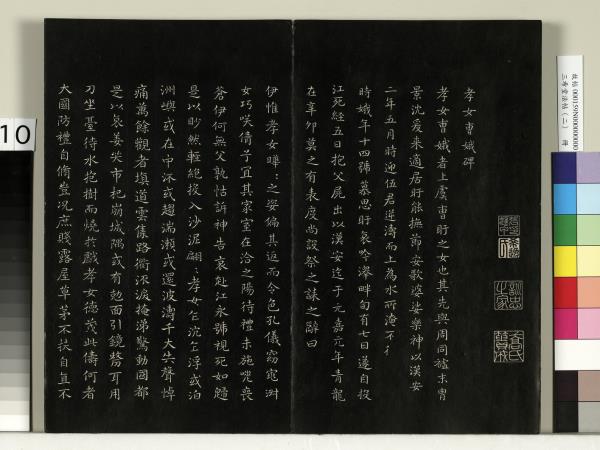 孝女曹娥碑
孝女曹娥者上虞曹盱之女也其先與周同祖末胄
景沈爰來適居盱能撫節安歌婆娑樂神以漢安
二年五月時迎伍君逆濤而上為水所淹不得
時娥年十四號慕思盱哀吟澤畔旬有七日遂自投
江死經五日抱父屍出以漢安迄于元嘉元年青龍
在辛卯莫之有表度尚設祭之誄之辭曰
伊惟孝女曄:之姿偏其返而令色孔儀窈窕淑
女巧咲倩子宜其家室在洽之陽待禮未施嗟喪
蒼伊何無父孰怙訴神告哀赴江永號視死如歸
是以眇然輕絕投入沙泥翩:孝女乍沉乍浮或泊
洲嶼或在中沠或趨湍瀨或還波濤千夫失聲悼
痛萬餘觀者填道雲集路衢泣淚掩涕驚動國都
是以哀姜哭市杞崩城隅或有剋面引鏡剺耳用
刀坐臺待水抱樹而燒於戲孝女德茂此儔何者
大國防禮自脩豈况庶賤露屋草茅不扶自直不
10
故帖 000159N000000000
三希堂法帖(二) 冊